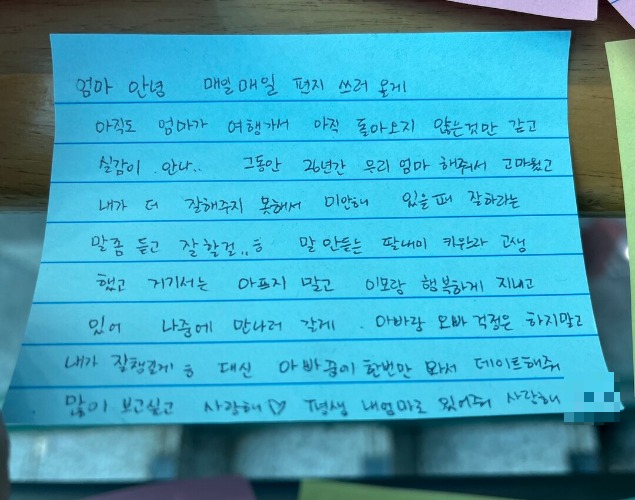 엄마 안녕 매일매일 편지 쓰러 올게
아직도 엄마가 여행가서 아직 돌아오지 않는것만 같고
실감이 안나.. 그동안 26년간 우리 엄마 해줘서 고마웠고
내가 더 잘해주지 못해서 미안해 있을때 잘하라는
말좀 듣고 잘할걸,,ㅎ 말 안듣는 딸내미 키우느라 고생
했고 거기서는 아프지 말고 이모랑 행복하게 지내고
있어 나중에 만나러 갈게. 아빠랑 오빠 걱정은 하지말고
내가 잘챙길게ㅎ 대신 아빠 꿈에 한번만 와서 데이트해줘
많이 보고싶고 사랑해♡ 평생 내엄마로 있어줘 사랑해